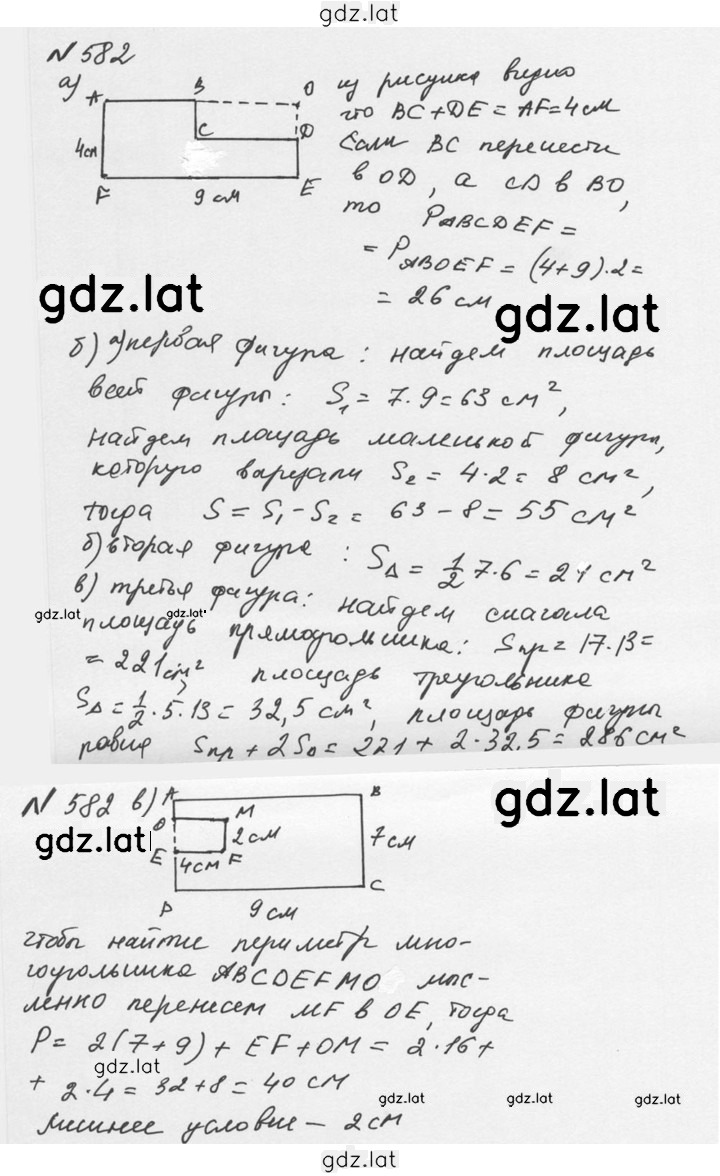 gdz.lat
N 582
а)
A B O
C D
4см
F 9 см E
из рисунка видно
что BC+DE = AF=4см
Если BC перенести
в OD, а CD в BO,
то P ABCDEF =
= P ABOEF = (4+9)·2=
= 26 см
gdz.lat
gdz.lat
б) а) первая фигура: найдем площадь
всей фигуры: S₁ = 7·9=63 см²,
найдем площадь маленькой фигуры,
которую вырезали S₂ = 4·2= 8 см²,
тогда S = S₁-S₂ = 63-8=55 см²
б) вторая фигура: SΔ = 1/2 7·6=21 см²
в) третья фигура: найдем сначала
gdz.lat gdz.lat
площадь прямоугольника: Sпр = 17·13=
= 221 см², площадь треугольника
SΔ = 1/2·5·13= 32,5 см², площадь фигуры
равна Sпр + 2SΔ = 221 + 2·32,5=286 см²
N 582 в)
A B
gdz.lat
gdz.lat
O M
2см
7см
E 4см F
P 9 см C
чтобы найти периметр мно-
гоугольника ABCDEFMO мыс-
ленно перенесем MF в OE, тогда
P= 2(7+9) + EF+OM = 2·16+
gdz.lat
+ 2·4= 32+8= 40 см
gdz.lat gdz.lat gdz.lat
Лишнее условие – 2см
gdz.lat